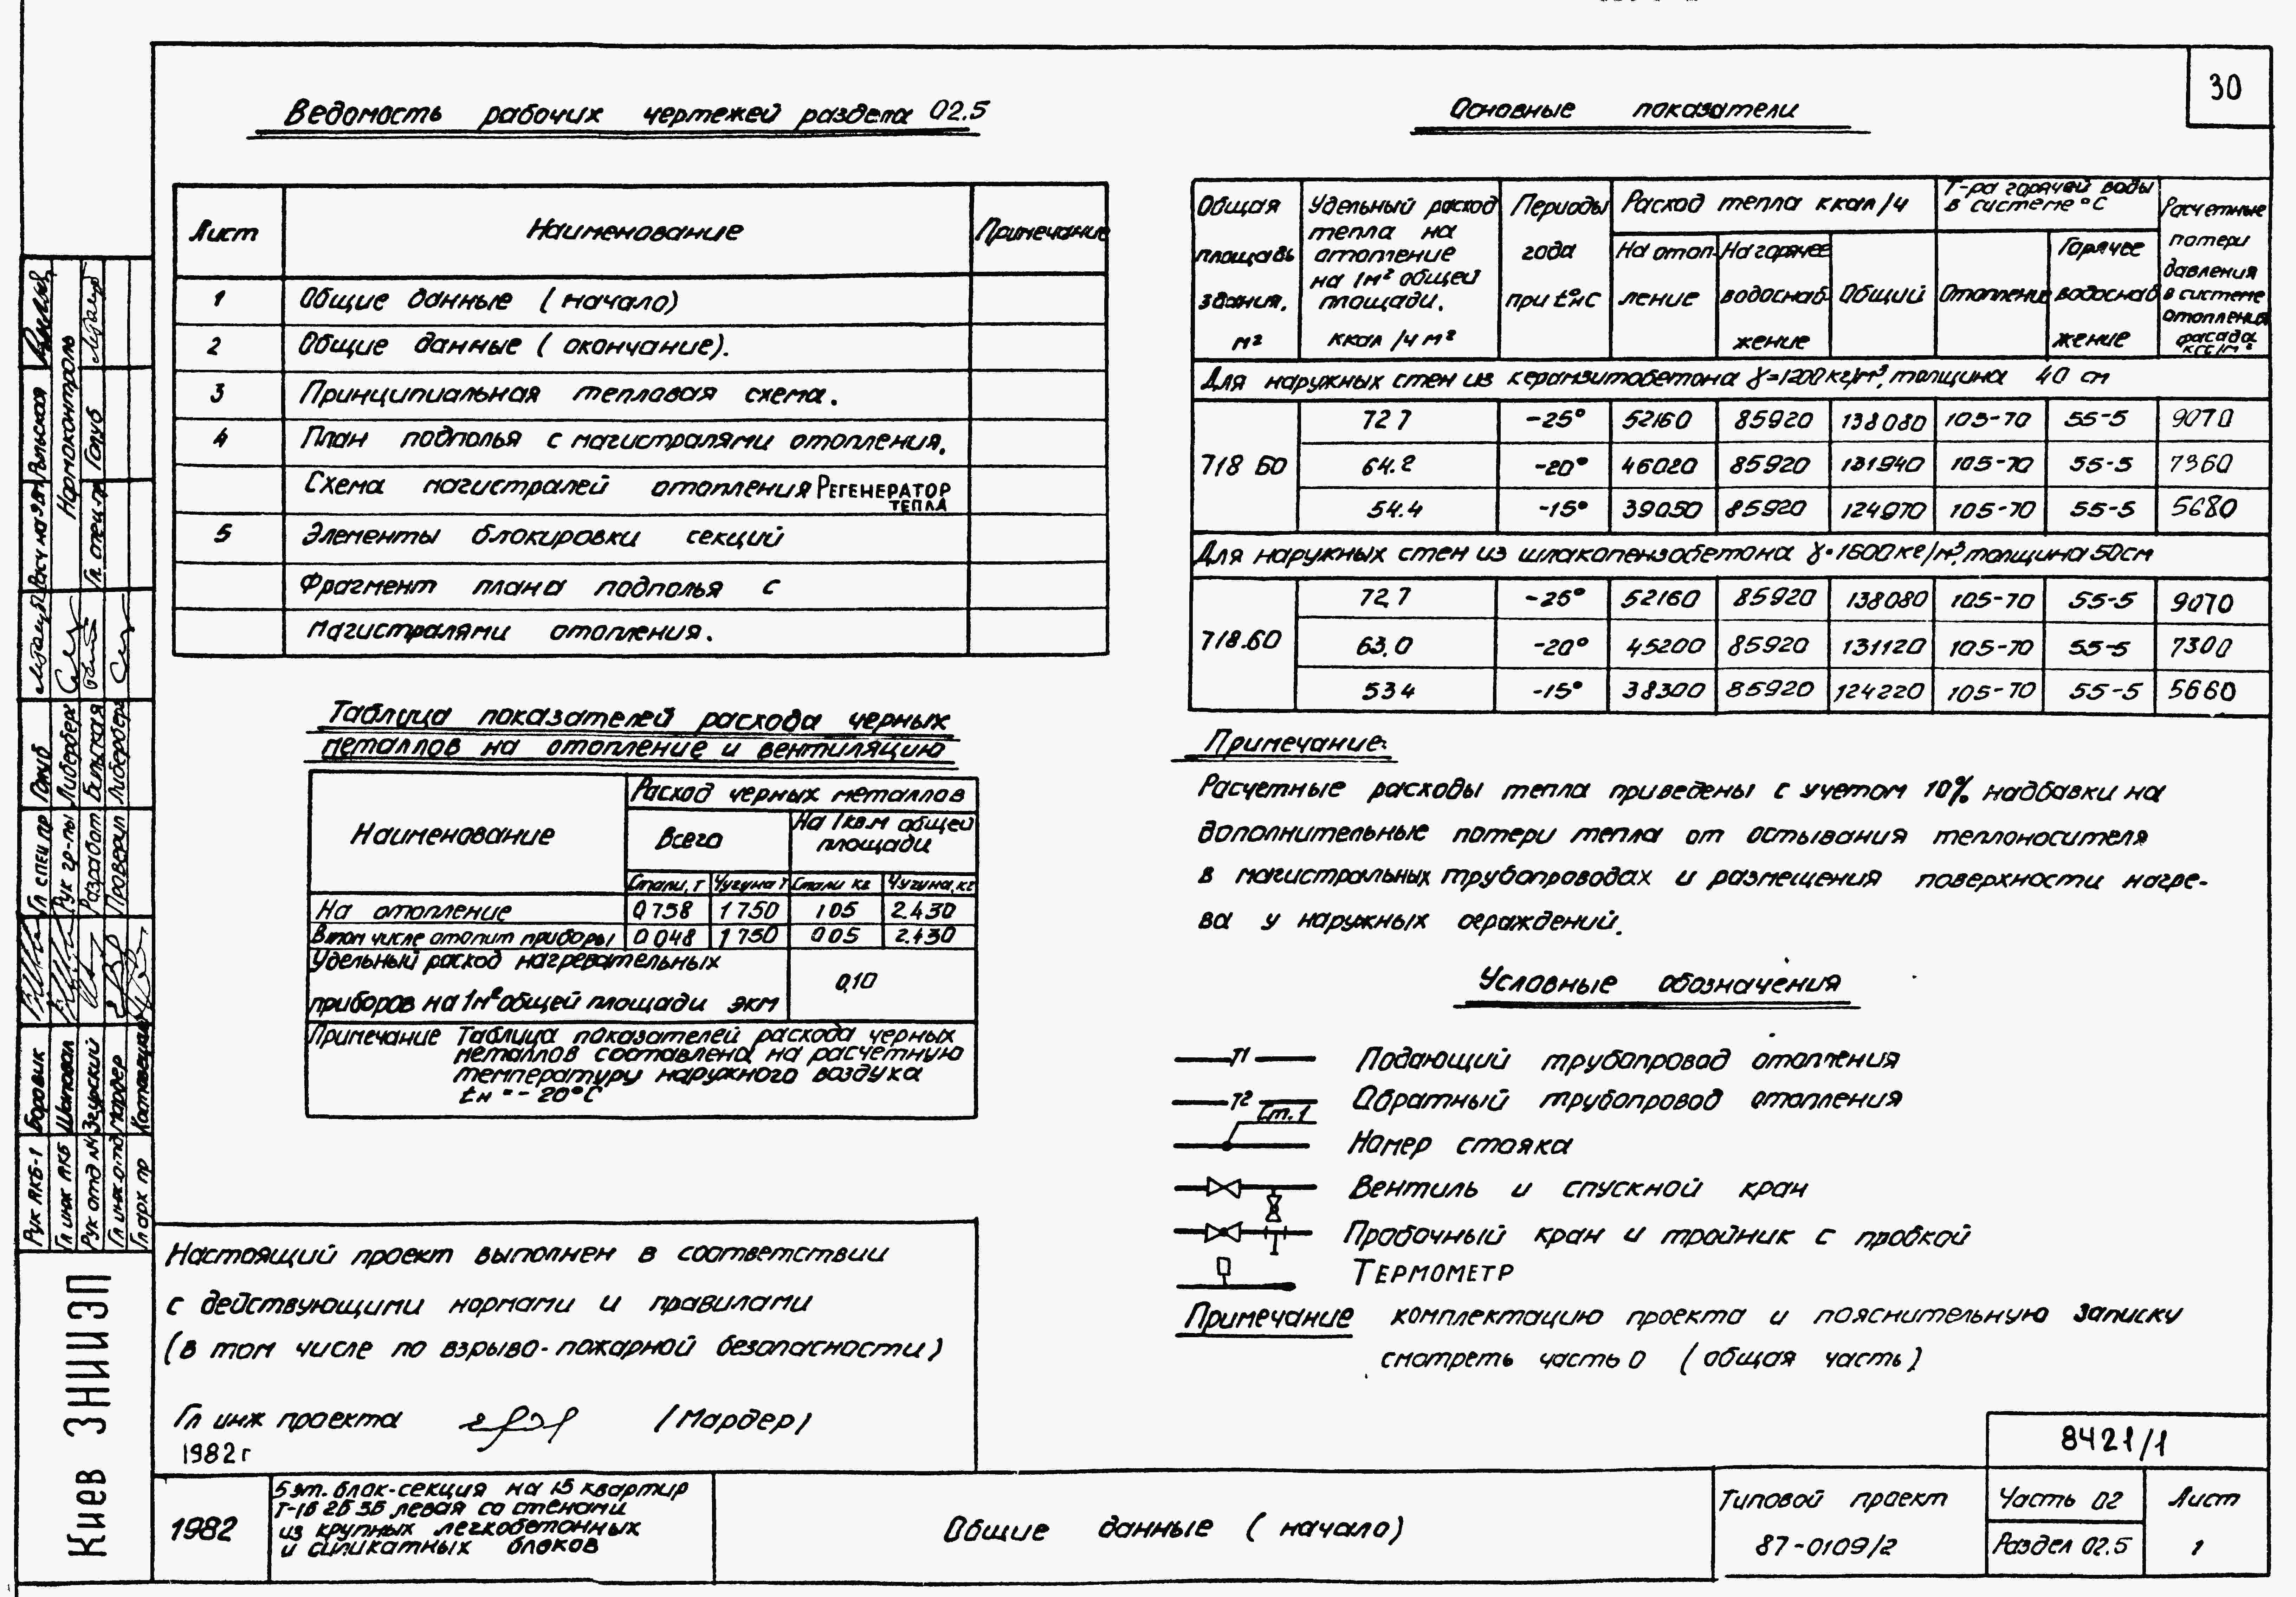 30
Ведомость рабочих чертежей раздела 02.5
Лист Наименование Примечание
1 Общие данные (начало)
2 Общие данные (окончание).
3 Принципиальная тепловая схема.
4 План подполья с магистралями отопления.
Схема магистралей отопления Регенератор
тепла
5 Элементы блокировки секций
Фрагмент плана подполья с
магистралями отопления.
Таблица показателей расхода черных
металлов на отопление и вентиляцию
Наименование
Расход черных металлов
Всего
На 1кв.м общей
площади
Стали, т Чугуна т Стали кг Чугуна, кг
На отопление 0758 1750 105 2.430
В том числе отопит приборы 0048 1750 005 2.430
Удельный расход нагревательных
приборов на 1м² общей площади экм
0,10
Примечание Таблица показателей расхода черных
металлов составлена на расчетную
температуру наружного воздуха
tн = -20°С
Настоящий проект выполнен в соответствии
с действующими нормами и правилами
(в том числе по взрыво-пожарной безопасности)
Гл инж проекта (Мардер)
1982г
Основные показатели
Общая
площадь
здания.
м²
Удельный расход
тепла на
отопление
на 1м² общей
площади.
ккал/ч м²
Периоды
года
при t°нС
Расход тепла ккал/ч
На отоп-
ление
На горячее
водоснаб-
жение
Общий
Т-ра горячей воды
в системе °С
Отопление
Горячее
водоснаб
жение
Расчетные
потери
давления
в системе
отопления
фасада
кгс/м²
Для наружных стен из керамзитобетона γ=1200кг/м³, толщина 40 см
718 60
72 7 -25° 52160 85920 138080 105-70 55-5 9070
64.2 -20° 46020 85920 131940 105-70 55-5 7360
54.4 -15° 39050 85920 124970 105-70 55-5 5680
Для наружных стен из шлакопемзобетона γ=1600кг/м³, толщина 50см
718.60
72,7 -25° 52160 85920 138080 105-70 55-5 9070
63,0 -20° 45200 85920 131120 105-70 55-5 7300
534 -15° 38300 85920 124220 105-70 55-5 5660
Примечание:
Расчетные расходы тепла приведены с учетом 10% надбавки на
дополнительные потери тепла от остывания теплоносителя
в магистральных трубопроводах и размещения поверхности нагре-
ва у наружных ограждений.
Условные обозначения
Т1 Подающий трубопровод отопления
Т2 Обратный трубопровод отопления
Ст.1
Номер стояка
Вентиль и спускной кран
Пробочный кран и тройник с пробкой
Термометр
Примечание комплектацию проекта и пояснительную записку
смотреть часть 0 (общая часть)
8421/1
1982
5 эт. блок-секция на 15 квартир
Т-1б 2б 3б левая со стенами
из крупных легкобетонных
и силикатных блоков
Общие данные (начало)
Типовой проект
87-0109/2
Часть 02
Раздел 02.5
Лист
1
Киев ЗНИИЭП
Рук АКБ-1 Боровик
Гл инж АКБ Шаповал
Рук отд Згурский
Гл инж отд Мардер
Гл арх пр
Гл спец пр Голуб
Рук гр-пы Либерберг
Разработ Бельская
Проверил Либерберг
Нормоконтроль
Гл спец пр Голуб